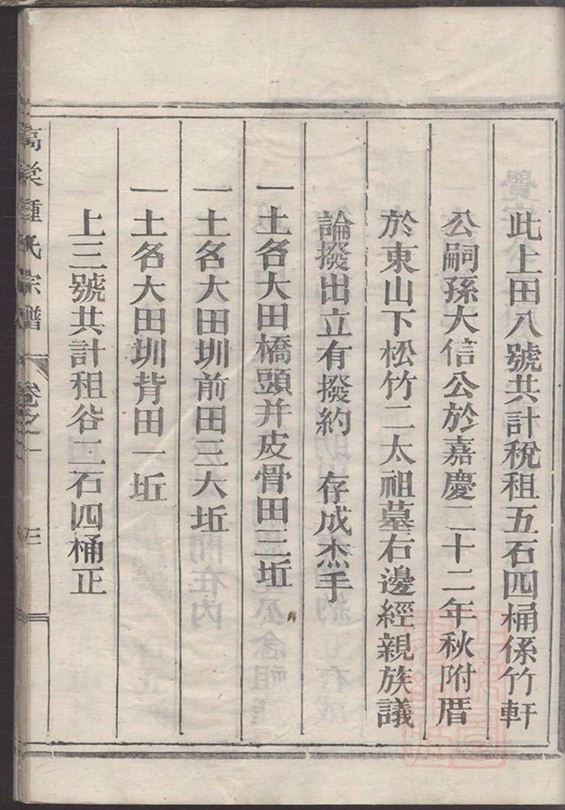 此上田八號共計稅租五石四桶係竹軒
公嗣孫大信公於嘉慶二十二年秋附厝
於東山下松竹二太祖墓右邊經親族議
論撥出立有撥約　存成杰手
一土名大田橋頭并皮骨田三坵
一土名大田圳前田三大坵
一土名大田圳背田一坵
上三號共計租谷二石四桶正
鍾氏宗譜
卷之一
三